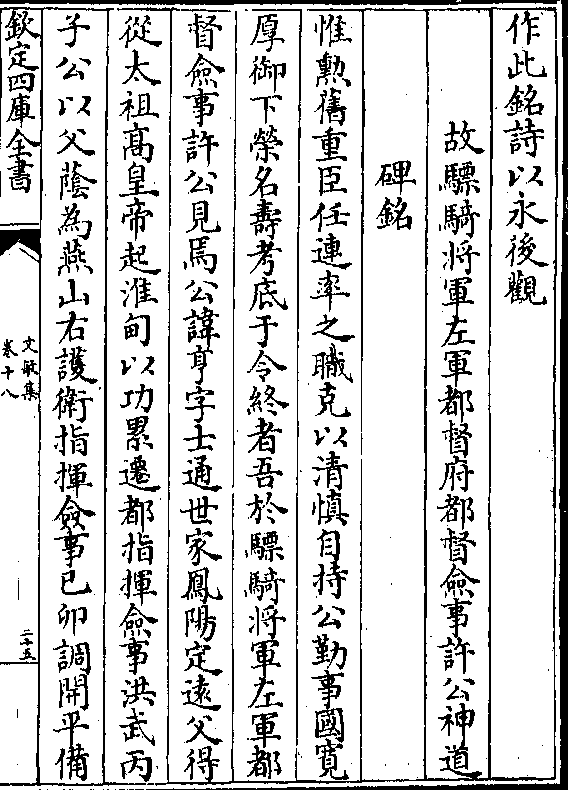 作此銘詩以永後觀
故驃騎將軍左軍都督府都督僉事許公神道
碑銘
惟勲舊重臣任連率之職克以清慎自持公勤事國寛
厚御下榮名壽考底于令終者吾於驃騎將軍左軍都
督僉事許公見焉公諱亨字士通世家鳳陽定逺父得
從太祖髙皇帝起淮甸以功累遷都指揮僉事洪武丙
子公以父蔭為燕山右護衛指揮僉事己卯調開平備
欽定四庫全書
文敏集
卷十八
二十五